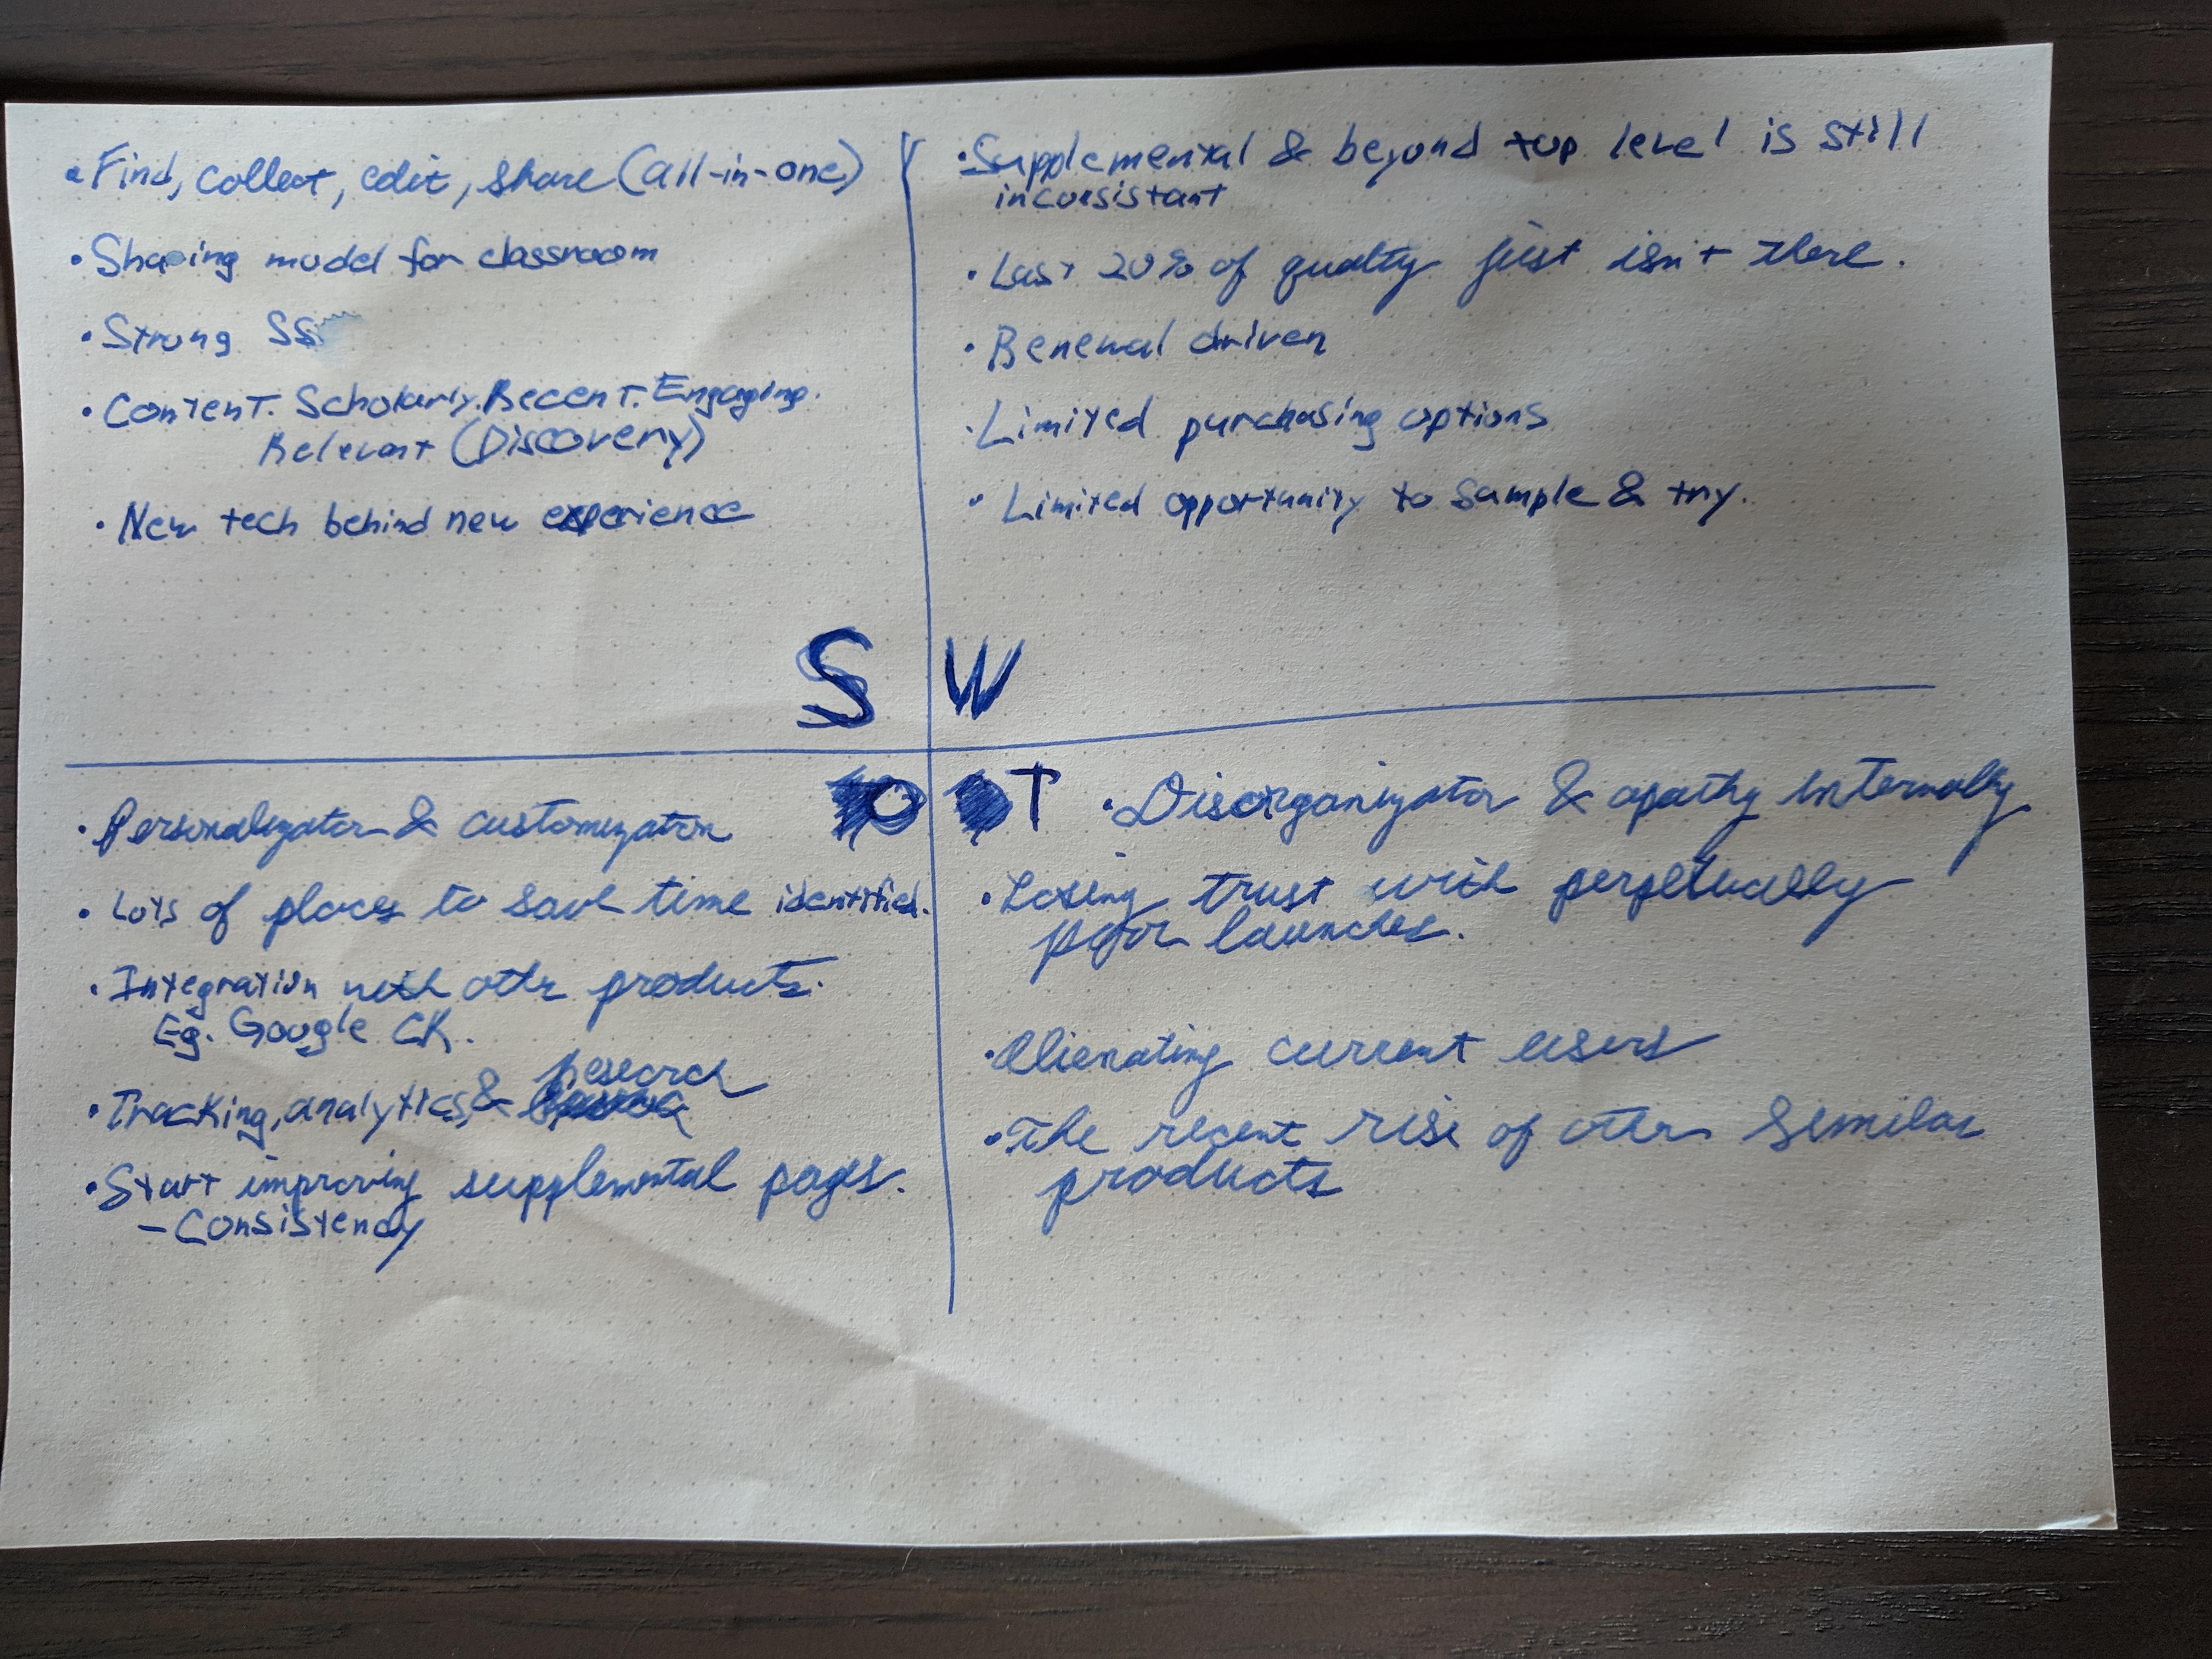 • Find, collect, edit, share (all-in-one)
• Shaping model for classroom
• Strong SS
• Content. Scholarly. Recent. Engaging.
Relevant (Discovery)
• New tech behind new experience
S
• Supplemental & beyond top level is still
inconsistant
• Last 20% of quality just isn't there.
• Renewal driven
• Limited purchasing options
• Limited opportunity to sample & try.
W
O
• Personalization & customization
• Lots of places to save time identified.
• Integration with other products.
Eg. Google CR.
• Tracking, analytics, & Research
• Start improving supplemental pages.
- Consistency
T
• Disorganization & apathy internally
• Losing trust with perpetually
poor launches.
• Alienating current users
• The recent rise of other similar
products